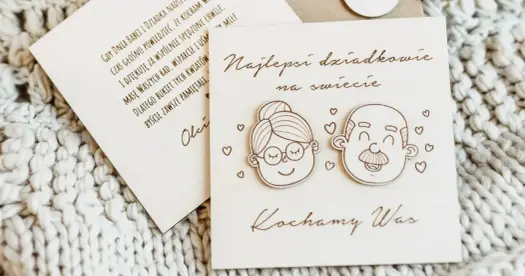 GDY DZIEŃ BABCI I DZIADKA
CZAS GŁOŚNO POWIEDZIEĆ, ŻE KOCHAM
I DZIĘKUJE ZA WSPÓLNIE SPĘDZONE CHWILE,
MASĘ WASZYCH RAD, WSPARCIE
DLATEGO BUKIET TYCH
BYŚCIE ZAWSZE PAMIĘTALI
Najlepsi dziadkowie
na swiecie
Kochamy Was